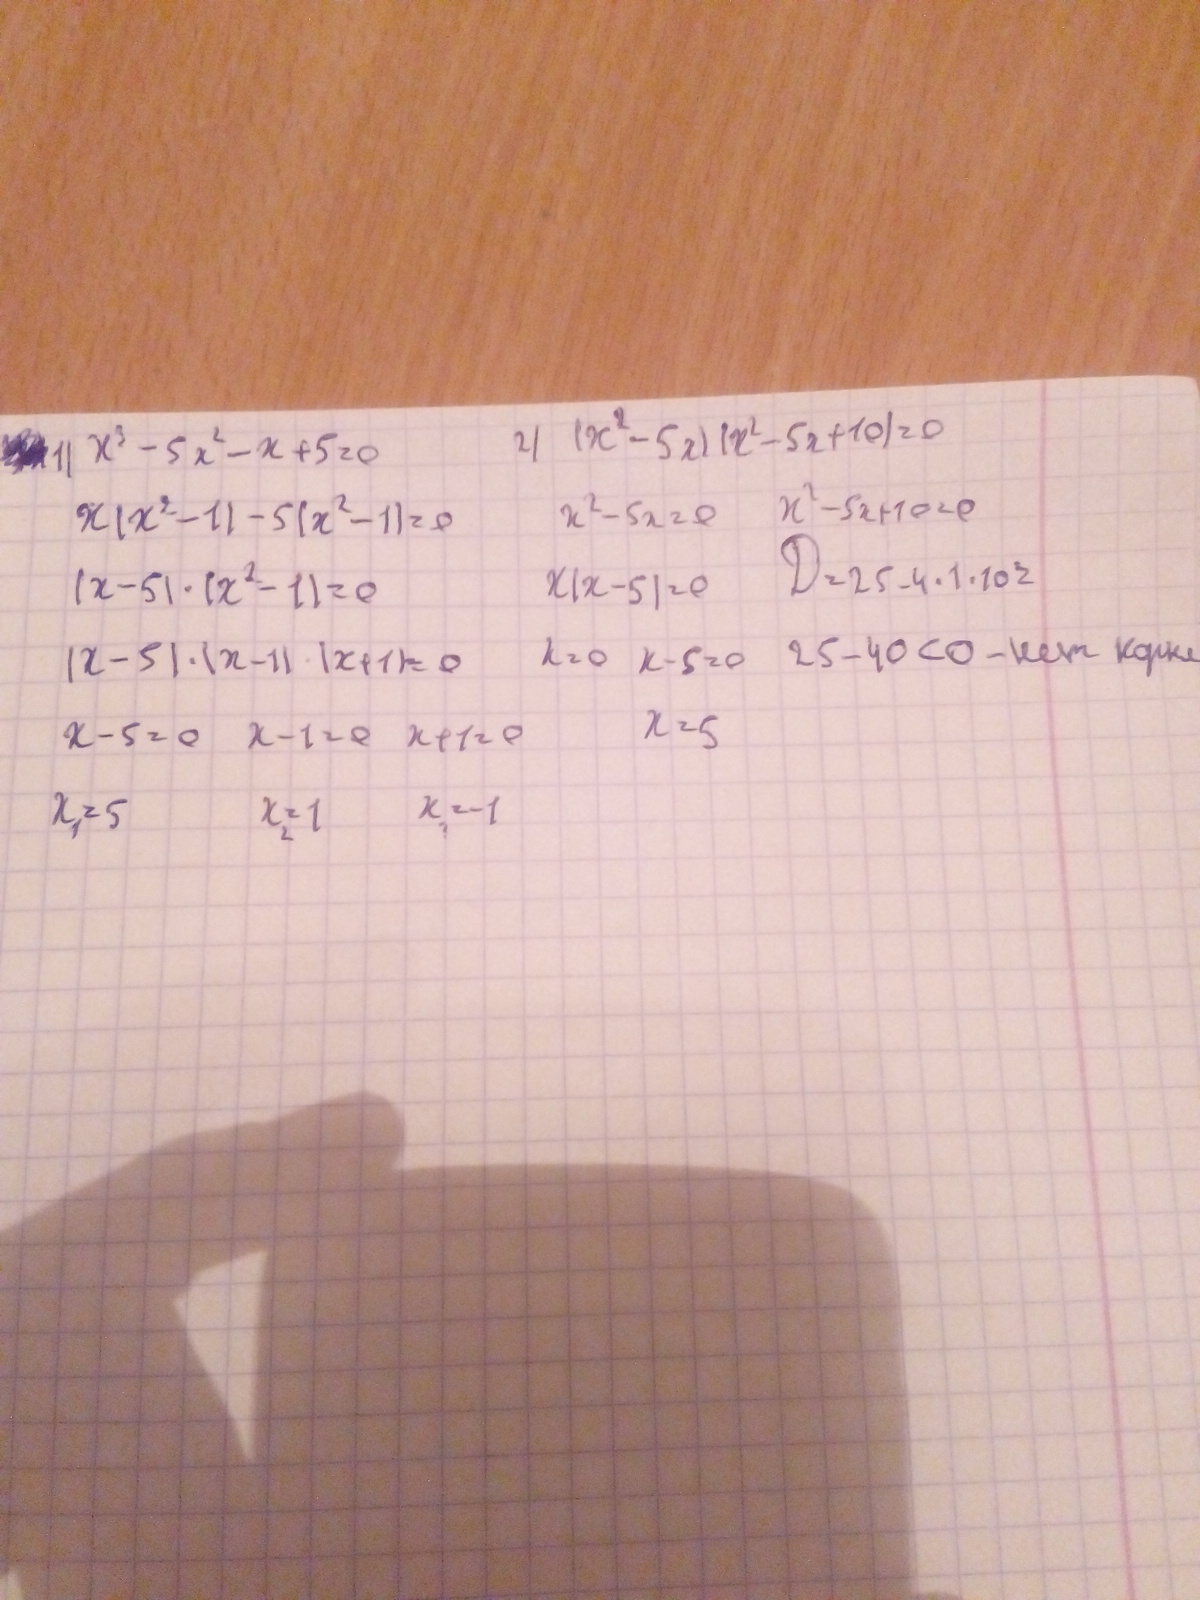 1) x³ - 5x² - x + 5 = 0
x(x² - 1) - 5(x² - 1) = 0
(x - 5) · (x² - 1) = 0
(x - 5) · (x - 1) · (x + 1) = 0
x - 5 = 0 x - 1 = 0 x + 1 = 0
x₁ = 5 x₂ = 1 x₃ = -1
2) (x² - 5x)(x² - 5x + 10) = 0
x² - 5x = 0 x² - 5x + 10 = 0
x(x - 5) = 0 D = 25 - 4 · 1 · 10 =
x = 0 x - 5 = 0 25 - 40 < 0 - нет корне
x = 5